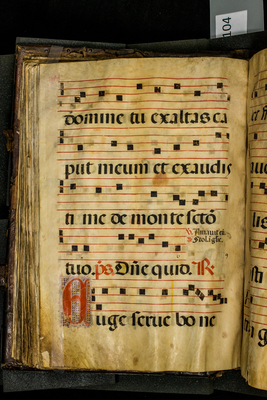 104
domine tu exaltas ca
put meum et exaudis
ti me de monte scto
tuo. ps Dne quid. R
uge serue bone